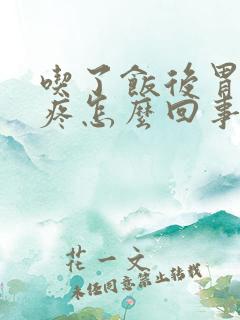 喫了飯後胃
疼怎麼回事
花一文
未经同意禁止转载